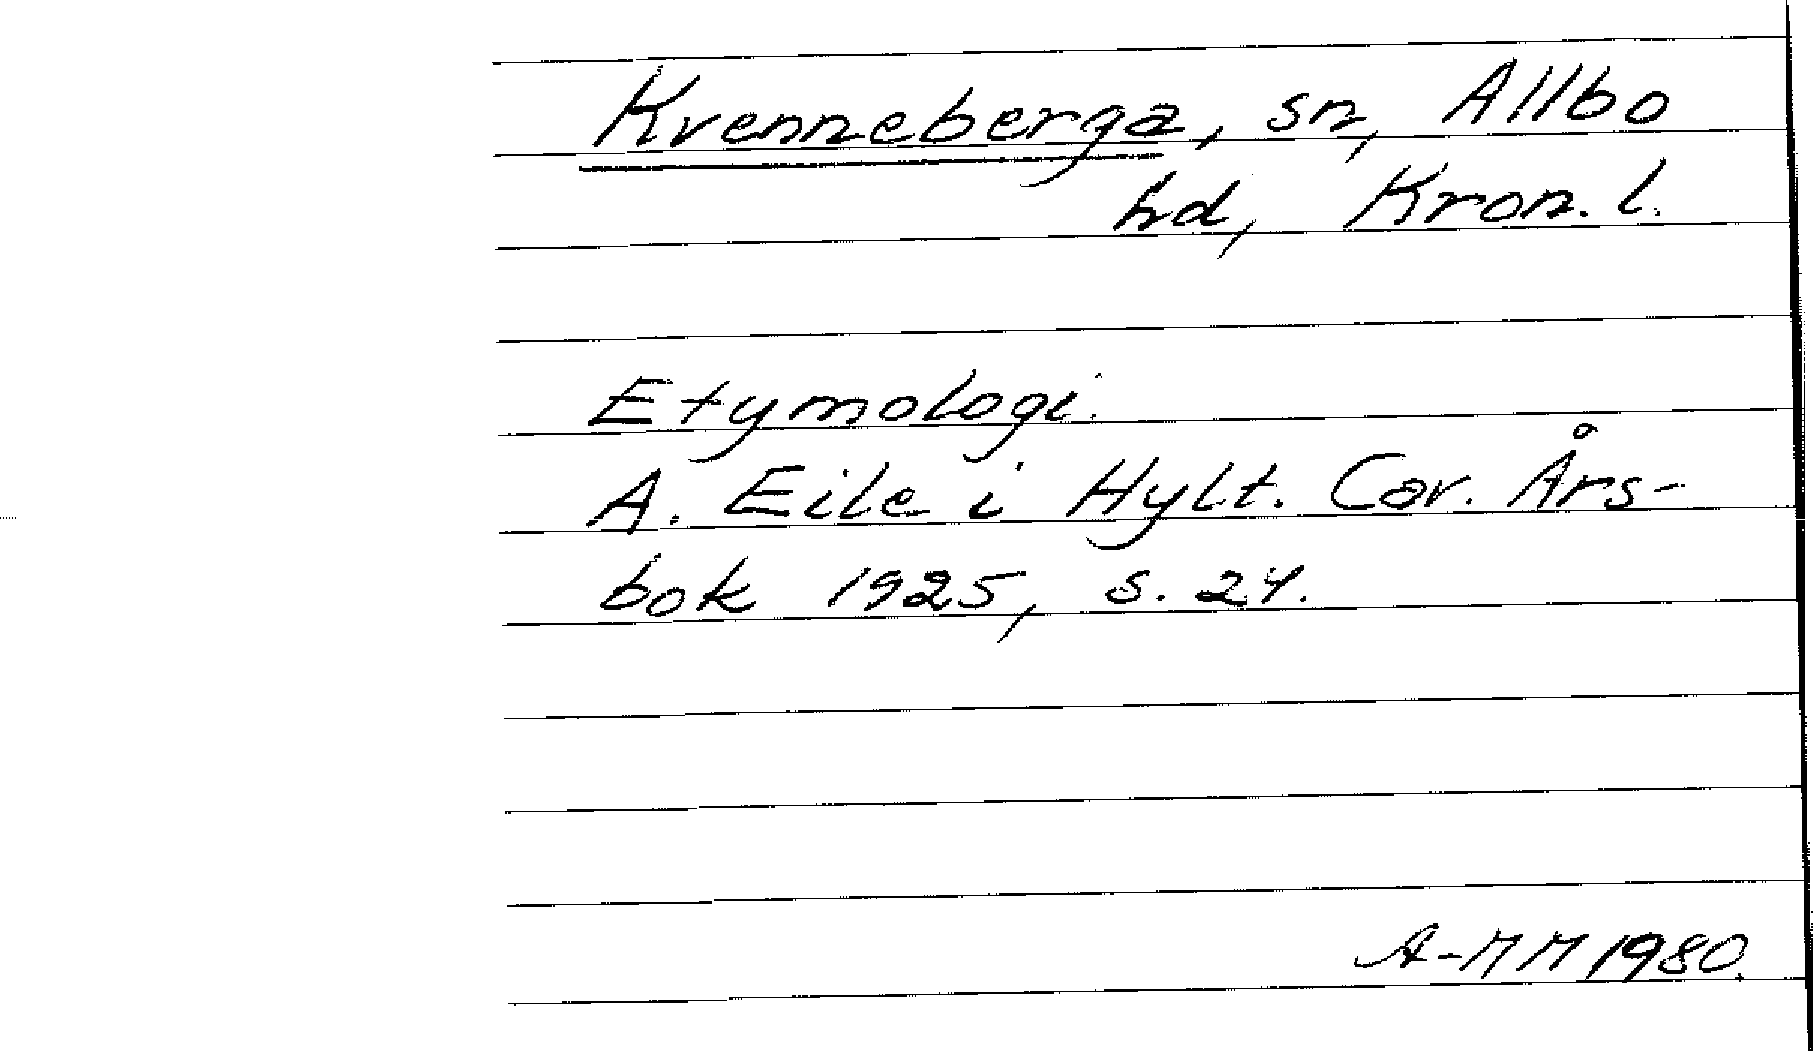 Kvenneberga, sn, Allbo
hd, Kron. l.
Etymologi.
A. Eile i Hylt. Cav. Års-
bok 1925, s. 24.
A-MM 1980.